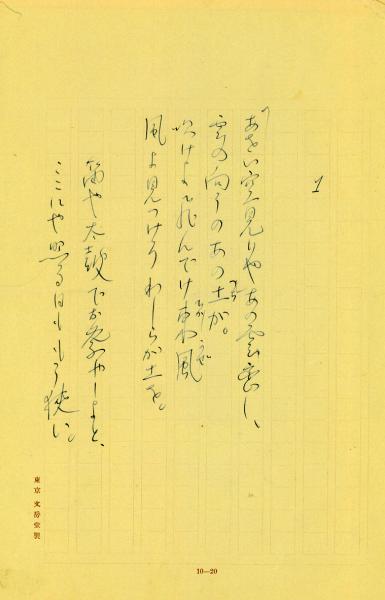 1
「あさい空見りやあの雲恋し、
雲の向うのあの土が。
吹けよ飛んでけ東風
風よ見つけろわしらが土を。
笛や太鼓でお祭やしよと、
ここにや照る日もうら狭い。
東京 文房堂製
10—20